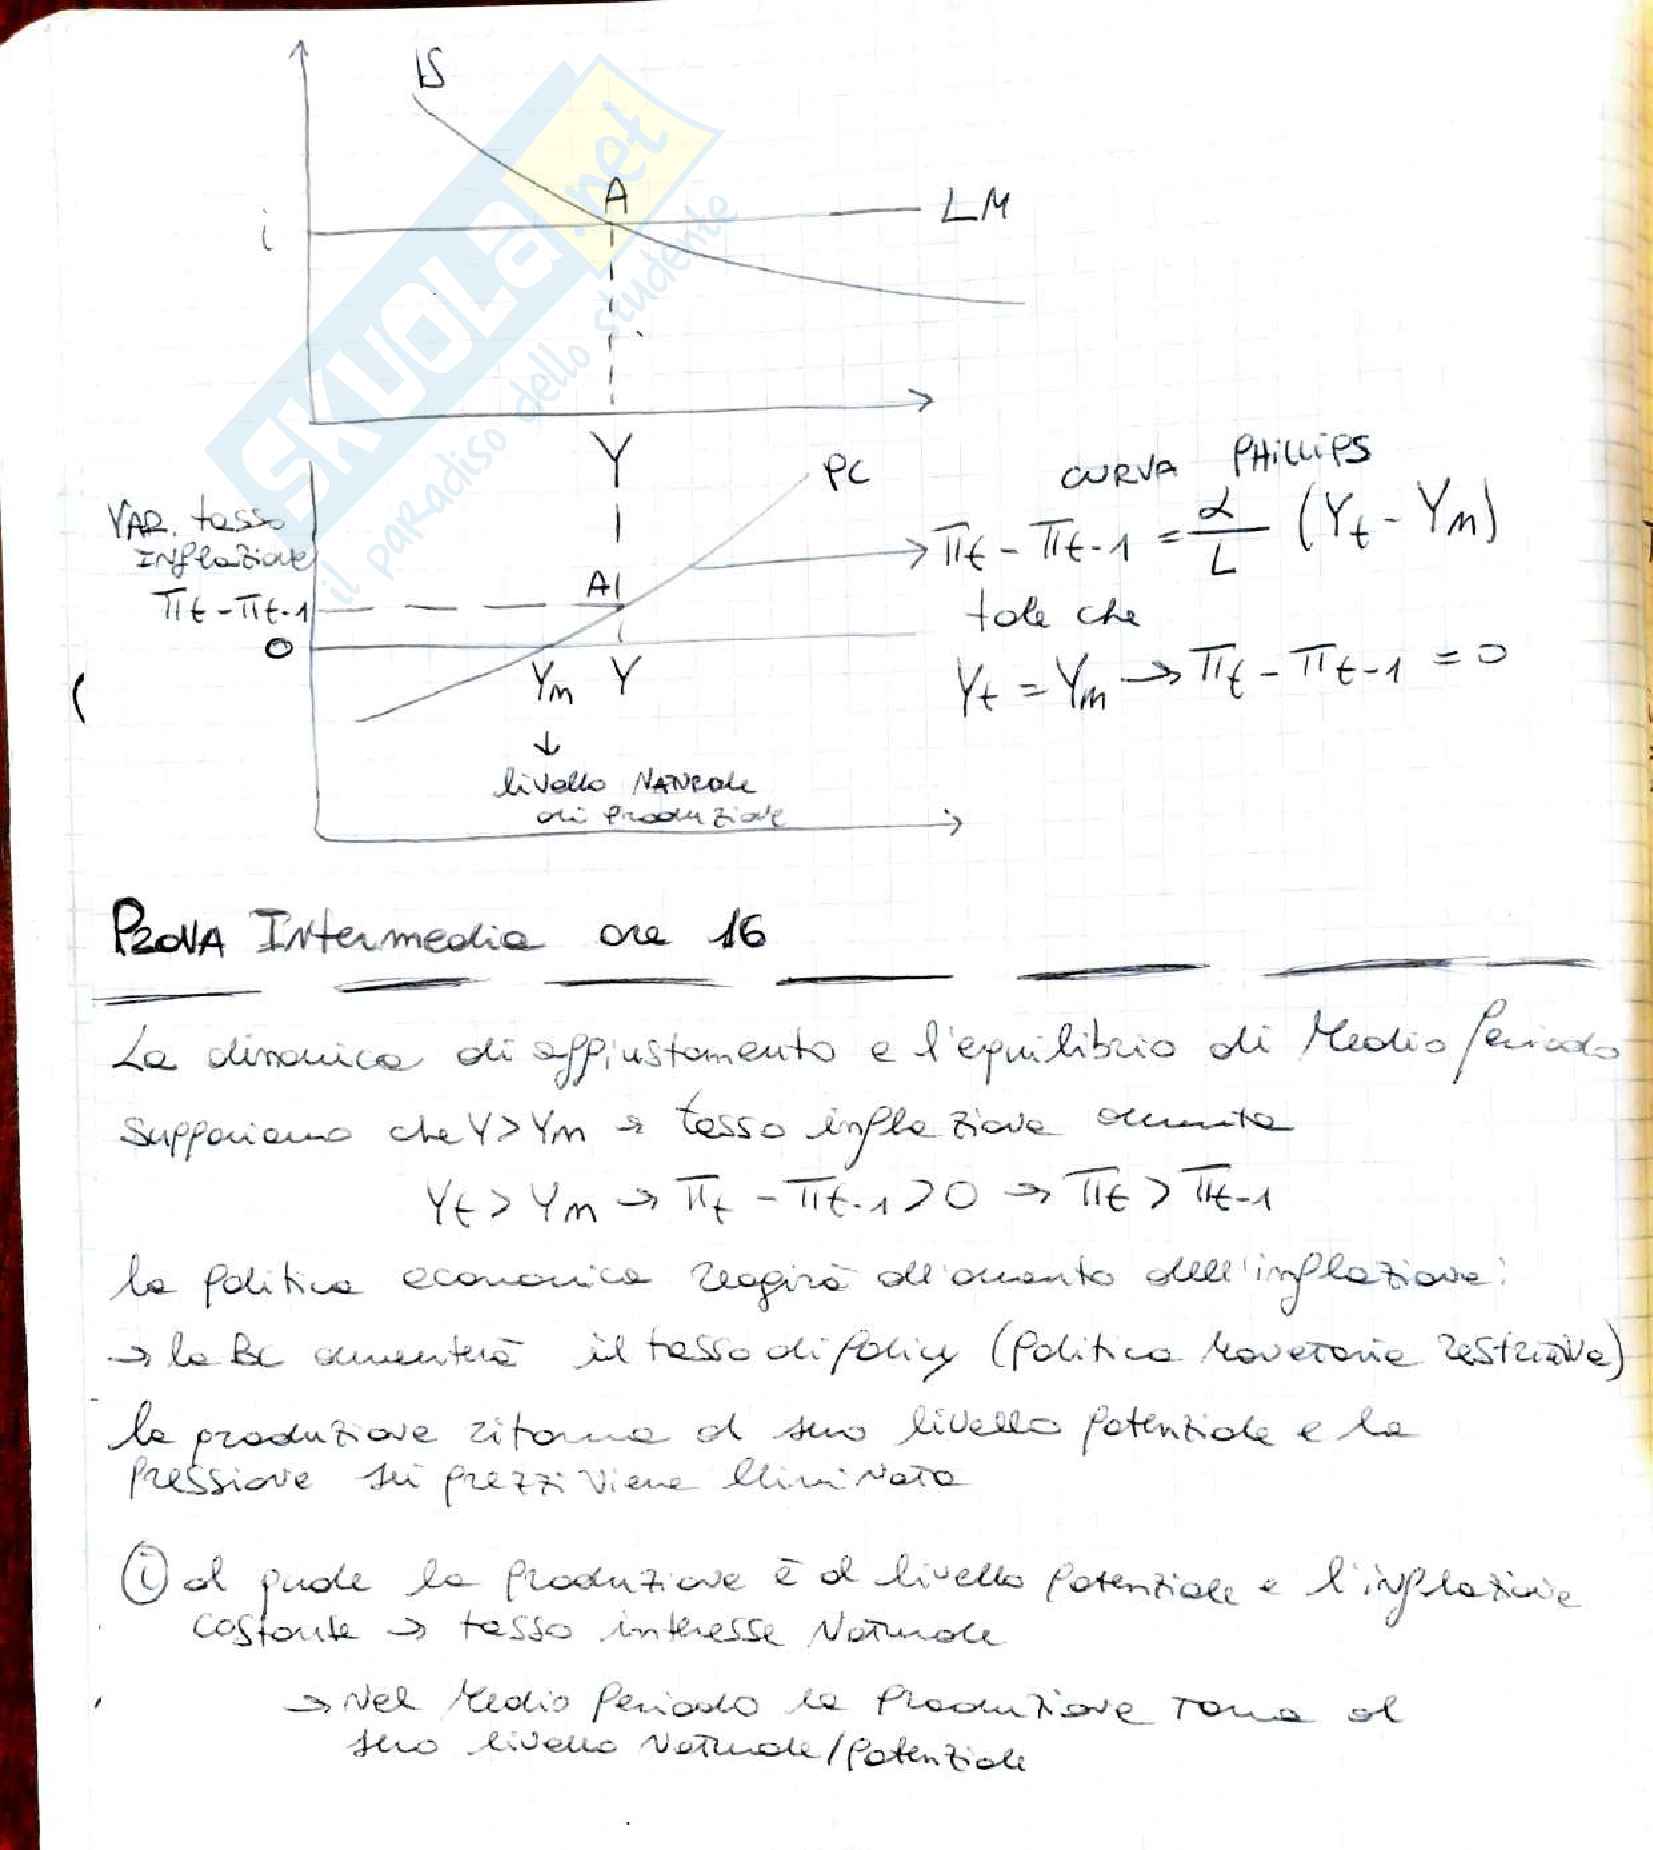 IS
A
LM
i
Y
PC
CURVA PHILLIPS
VAR. tasso
INflazione
πt - πt-1 = α/L (Yt - Yn)
A
πt - πt-1
tale che
0
Yn Y
Yt = Yn → πt - πt-1 = 0
↓
livello NATURale
di produzione
SKUOLA.net
il paradiso dello studente
PROVA Intermedia ore 16
La dinamica di aggiustamento e l'equilibrio di Medio periodo
supponiamo che Y > Yn → tasso inflazione aumenta
Yt > Yn → πt - πt-1 > 0 → πt > πt-1
la politica economica reagirà all'aumento dell'inflazione:
→ la BC aumenterà il tasso di policy (politica Monetaria restrittiva)
la produzione ritorna al suo livello potenziale e la
pressione sui prezzi viene eliminata
i al quale la produzione è al livello potenziale e l'inflazione
costante → tasso interesse Naturale
→ Nel Medio periodo la produzione torna al
suo livello Naturale/potenziale